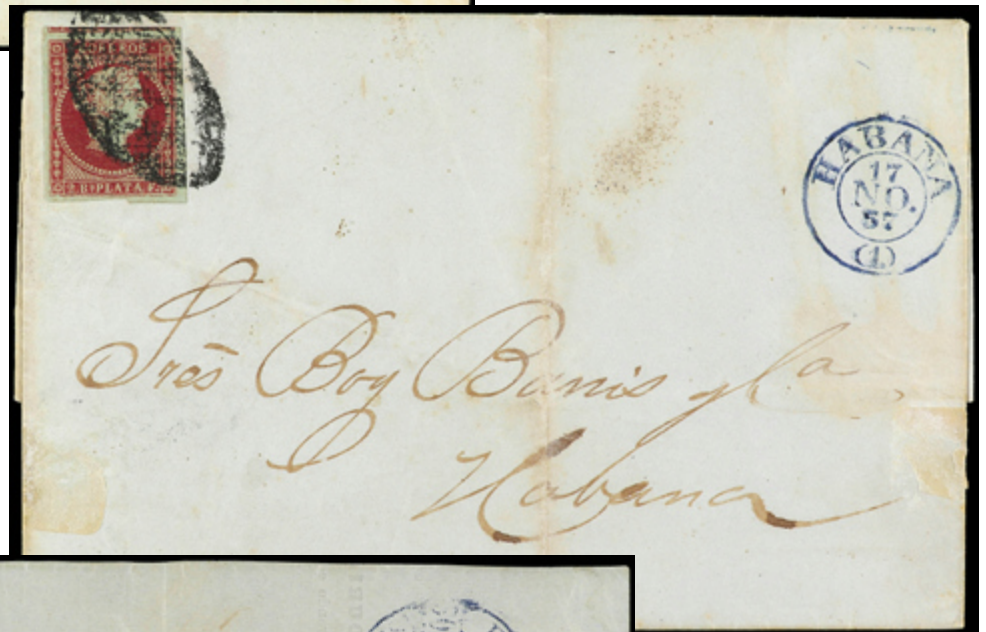 CORREOS
2 Rl PLATA F.
HABANA
17
NO.
57
(1)
Sres Boy Banis y Ca
Habana